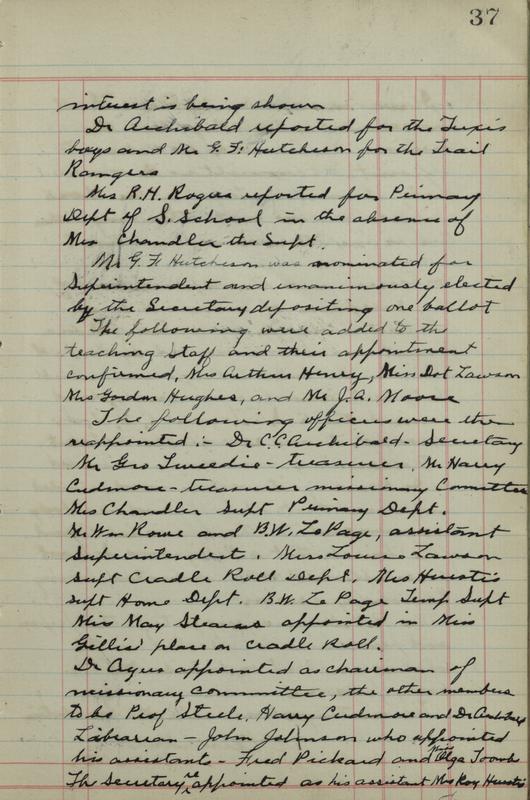 37
interest is being shown
Dr Archibald reported for the Tuxis
boys and Mr G. F. Hutcheson for the Trail
Rangers
Mrs R.H. Rogers reported for Primary
Dept of S. School in the absence of
Miss Chandler the Supt.
Mr G F Hutcheson was nominated for
Superintendent and unanimously elected
by the Secretary depositing one ballot
The following were added to the
teaching staff and their appointment
confirmed, Mrs Arthur Henry, Miss Dot Lawson
Mrs Gordon Hughes, and Mr J.A. Moore
The following officers were then
reappointed :- Dr C.C. Archibald - Secretary
Mr Geo Tweedie - treasurer. Mr Harry
Cudmore - treasurer missionary Committee
Miss Chandler Supt Primary Dept.
Mr Wm Rowe and B.W. LePage, assistant
Superintendent. Miss Louise Lawson
Supt Cradle Roll Dept. Mrs Huestis
Supt Home Dept. B.W. Le Page Temp Supt
Miss May Stearns appointed in Miss
Gillis' place on Cradle Roll.
Dr appointed as chairman of
missionary Committee, the other members
to be Prof Steele, Harry Cudmore and Dr Archibald
Librarian - John Johnson who appointed
his assistants - Fred Pickard and Olga Toombs
The Secretary re appointed as his assistant Mrs Roy Huestis